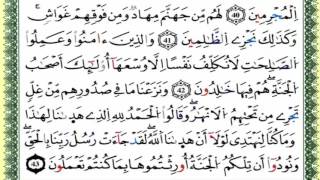 ٱلْمُجْرِمِينَ ۝٤٠ لَهُم مِّن جَهَنَّمَ مِهَادٌ وَمِن فَوْقِهِمْ غَوَاشٍ ۚ
وَكَذَٰلِكَ نَجْزِى ٱلظَّٰلِمِينَ ۝٤١ وَٱلَّذِينَ ءَامَنُوا۟ وَعَمِلُوا۟
ٱلصَّٰلِحَٰتِ لَا نُكَلِّفُ نَفْسًا إِلَّا وُسْعَهَآ أُو۟لَٰٓئِكَ أَصْحَٰبُ
ٱلْجَنَّةِ ۖ هُمْ فِيهَا خَٰلِدُونَ ۝٤٢ وَنَزَعْنَا مَا فِى صُدُورِهِم مِّنْ غِلٍّ
تَجْرِى مِن تَحْتِهِمُ ٱلْأَنْهَٰرُ ۖ وَقَالُوا۟ ٱلْحَمْدُ لِلَّهِ ٱلَّذِى هَدَىٰنَا لِهَٰذَا
وَمَا كُنَّا لِنَهْتَدِىَ لَوْلَآ أَنْ هَدَىٰنَا ٱللَّهُ ۖ لَقَدْ جَآءَتْ رُسُلُ رَبِّنَا بِٱلْحَقِّ ۖ
وَنُودُوٓا۟ أَن تِلْكُمُ ٱلْجَنَّةُ أُورِثْتُمُوهَا بِمَا كُنتُمْ تَعْمَلُونَ ۝٤٣